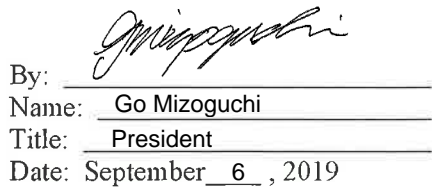 By:
Name: Go Mizoguchi
Title: President
Date: September 6 , 2019